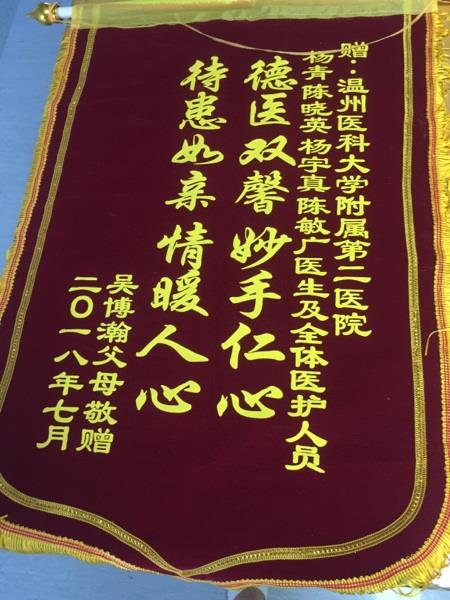 赠：温州医科大学附属第二医院
杨青陈晓英杨宇真陈敏广医生及全体医护人员
德医双馨妙手仁心
待患如亲情暖人心
吴博瀚父母敬赠
二〇一八年七月